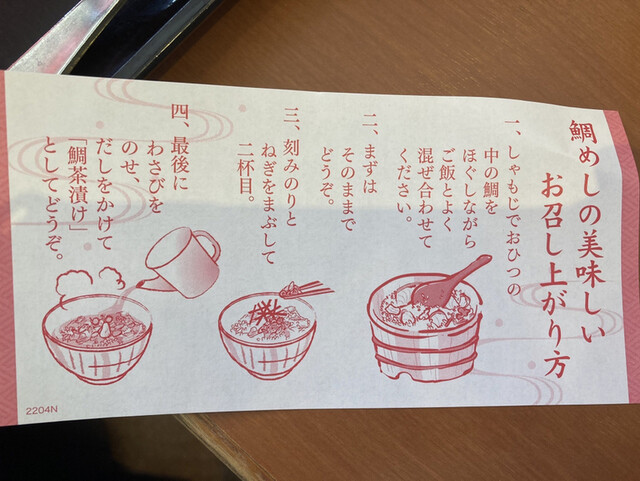 鯛めしの美味しい
お召し上がり方
一、しゃもじでおひつの
中の鯛を
ほぐしながら
ご飯とよく
混ぜ合わせて
ください。
二、まずは
そのままで
どうぞ。
三、刻みのりと
ねぎをまぶして
二杯目。
四、最後に
わさびを
のせ、
だしをかけて
「鯛茶漬け」
としてどうぞ。
2204N